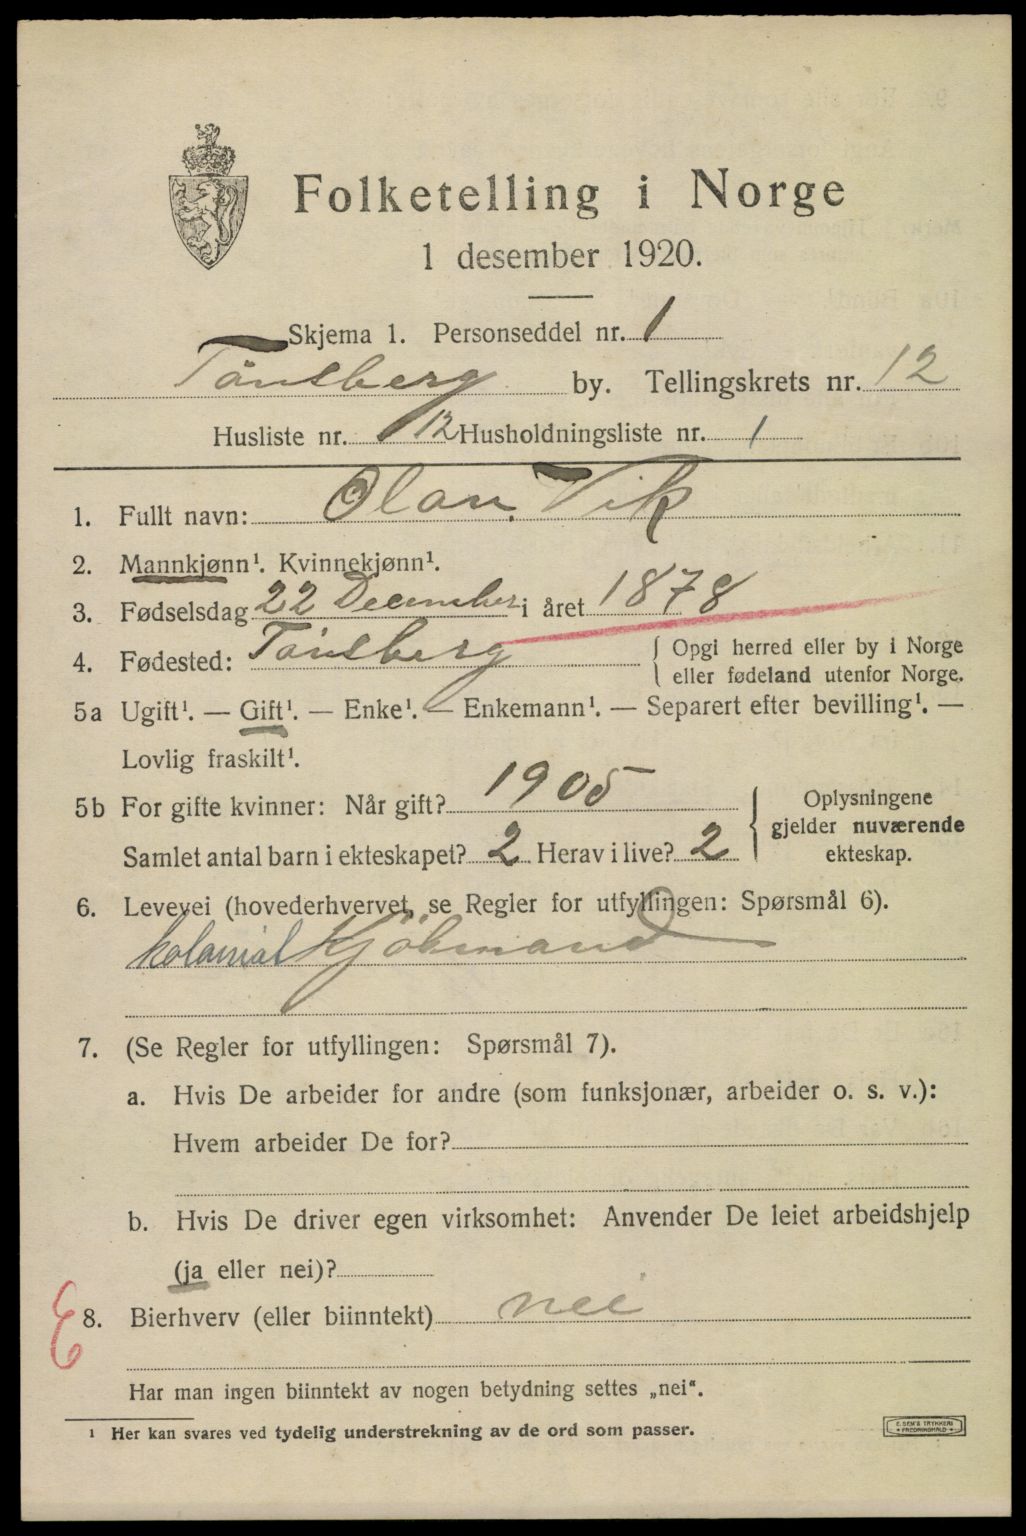 Folketelling i Norge
1 desember 1920.
Skjema 1. Personseddel nr. 1
Tönsberg by. Tellingskrets nr. 12
Husliste nr. 12 Husholdningsliste nr. 1
1. Fullt navn: Olav Vik
2. Mannkjønn¹. Kvinnekjønn¹.
3. Fødselsdag 22 December i året 1878
4. Fødested: Tönsberg { Opgi herred eller by i Norge
eller fødeland utenfor Norge.
5a Ugift¹. — Gift¹. — Enke¹. — Enkemann¹. — Separert efter bevilling¹. —
Lovlig fraskilt¹.
5b For gifte kvinner: Når gift? 1905
Samlet antal barn i ekteskapet? 2 Herav i live? 2
Oplysningene
gjelder nuværende
ekteskap.
6. Levevei (hovederhvervet, se Regler for utfyllingen: Spørsmål 6).
kolonial Kjöbmand
7. (Se Regler for utfyllingen: Spørsmål 7).
a. Hvis De arbeider for andre (som funksjonær, arbeider o. s. v.):
Hvem arbeider De for?
b. Hvis De driver egen virksomhet: Anvender De leiet arbeidshjelp
(ja eller nei)?
8. Bierhverv (eller biinntekt) nei
Har man ingen biinntekt av nogen betydning settes „nei“.
¹ Her kan svares ved tydelig understrekning av de ord som passer.
E. SEM'S TRYKKERI
FREDRIKSHALD